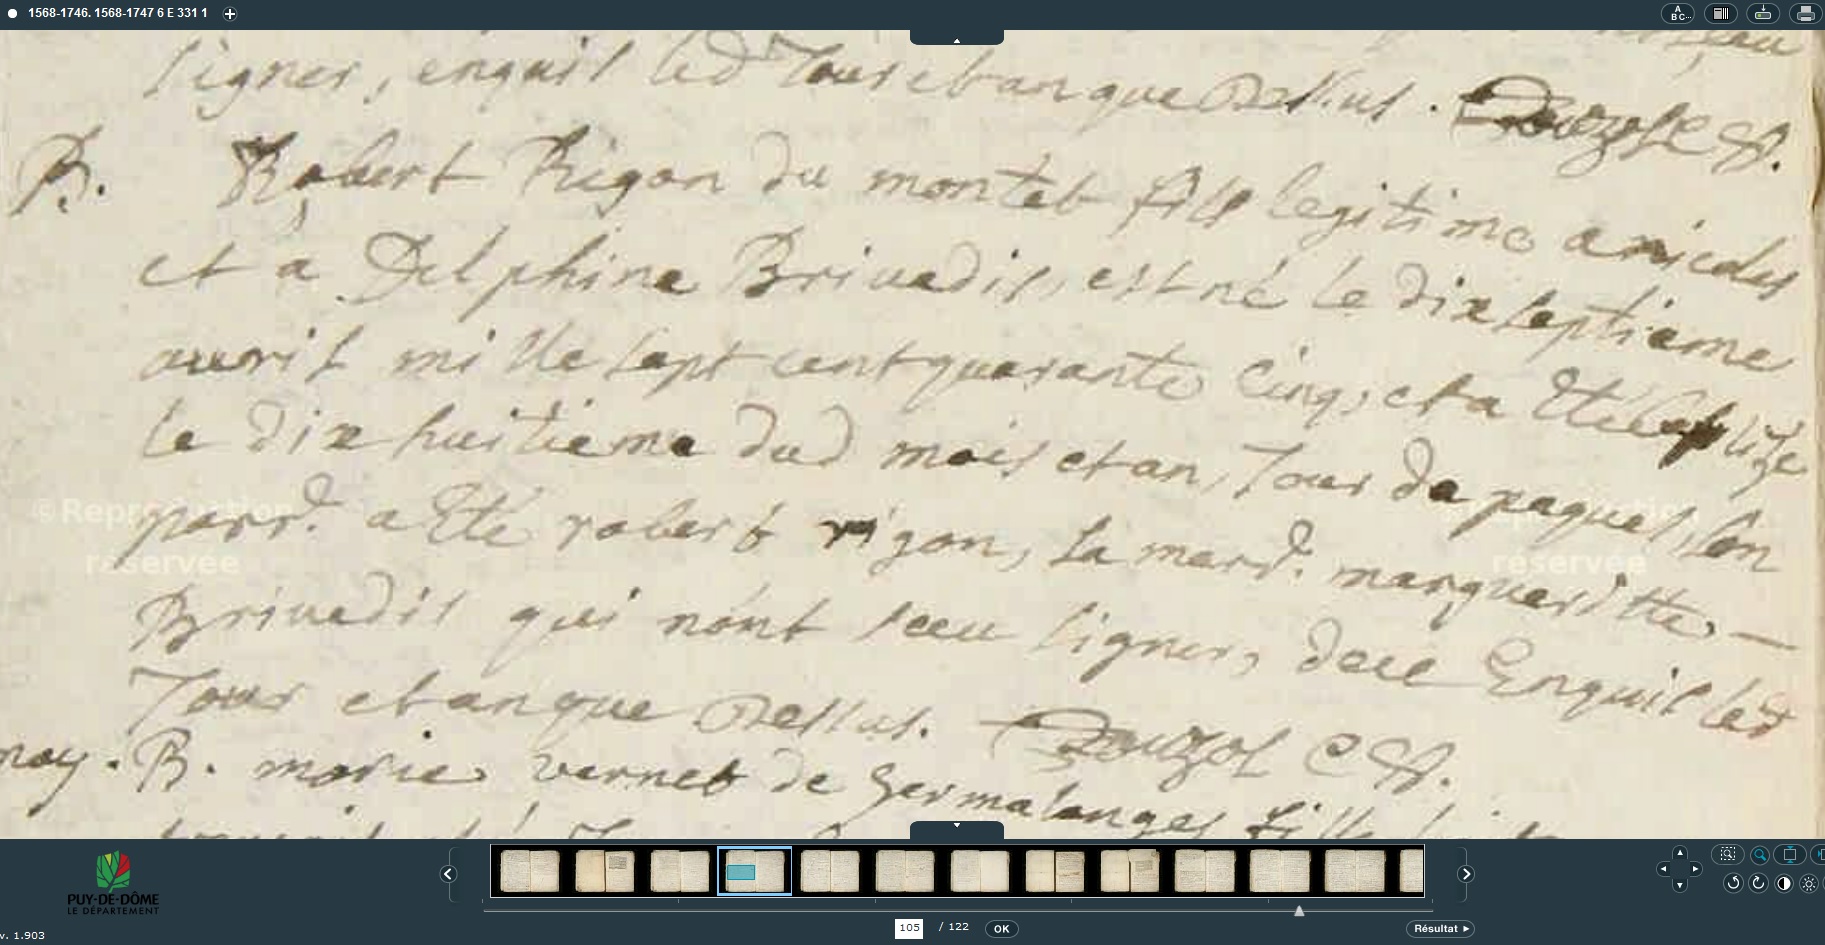 1568-1746. 1568-1747 6 E 331 1
A
BC...
signer, enquis led Jour et an que Dessus. Douzol
B. Robert Rigon du montel fils legitime a nicolas
et a Delphine Brivadis, est né le dix septieme
avvril mille sept cent quarante Cinq, et a été baptizé
le dix huitieme dud mois et an, Jour de paques, son
parr. a été robert rigon, sa marr. margueritte —
Brivadis qui nont sceu signer, de ce Enquis led
Jour et an que Dessus. Douzol
B. marie vernet de germalanges fille
© Reproduction
réservée
réservée
PUY-DE-DÔME
LE DÉPARTEMENT
105 / 122 OK
Résultat
v. 1.903